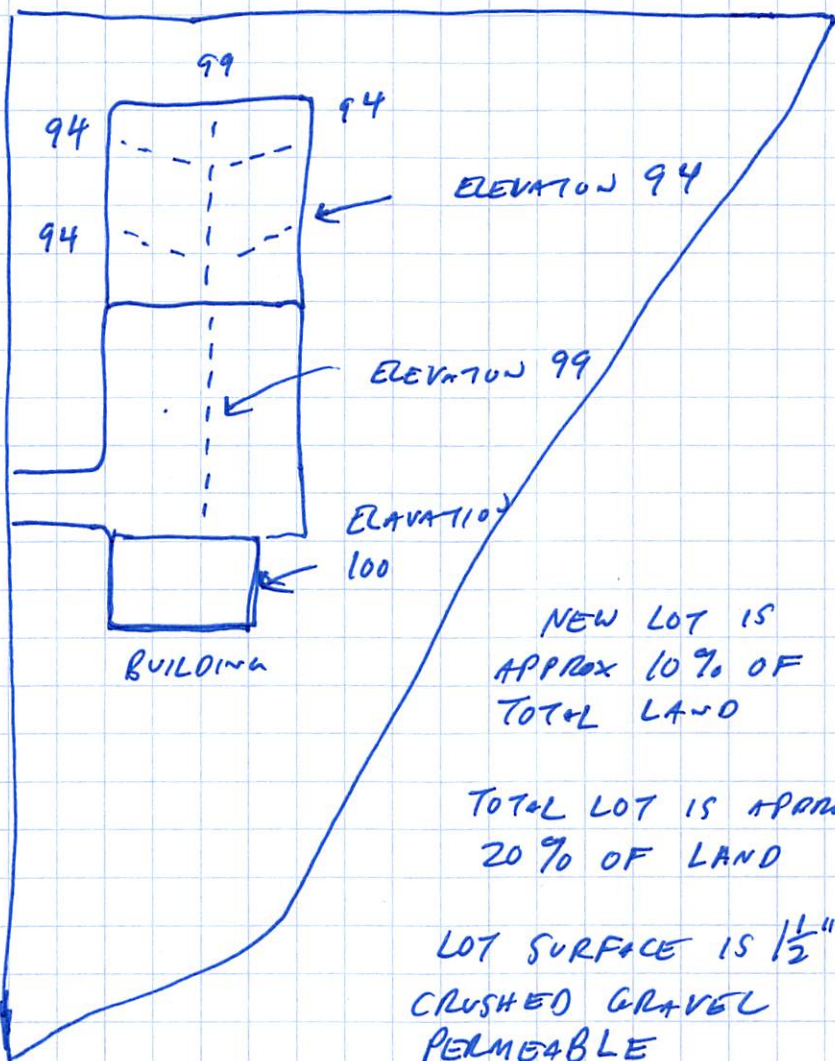 99
94 94
ELEVATION 94
94
ELEVATION 99
ELAVATION
100
BUILDING
NEW LOT IS
APPROX 10% OF
TOTAL LAND
TOTAL LOT IS APPRO
20% OF LAND
LOT SURFACE IS 1 1/2"
CRUSHED GRAVEL
PERMEABLE